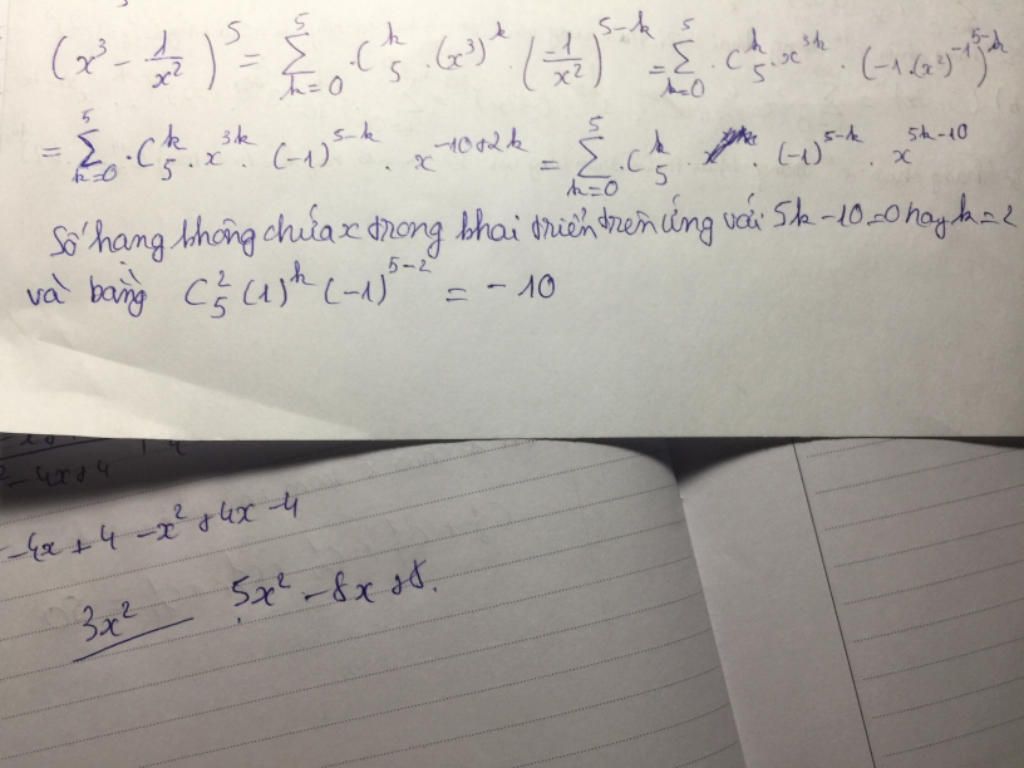 (x³ - 1/x²)⁵ = Σ_{k=0}^{5} . C_5^k . (x³)^k . (-1/x²)^{5-k} = Σ_{k=0}^{5} . C_5^k . x^{3k} . (-1.(x²)^{-1})^{5-k}
= Σ_{k=0}^{5} . C_5^k . x^{3k} . (-1)^{5-k} . x^{-10+2k} = Σ_{k=0}^{5} . C_5^k . (-1)^{5-k} . x^{5k-10}
Số hạng không chứa x trong khai triển trên ứng với 5k - 10 = 0 hay k = 2
và bằng C_5^2 (1)^k (-1)^{5-2} = - 10
- 4x + 4
-4x + 4 - x² + 4x - 4
3x² 5x² - 8x + 8.